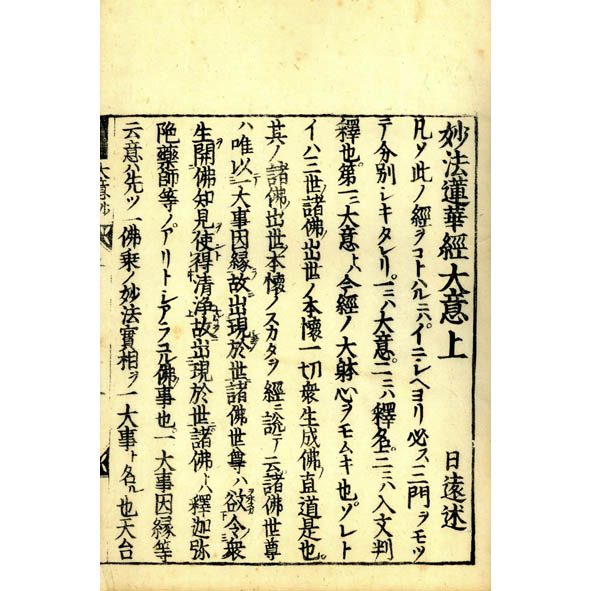 妙法蓮華經大意上　日遠述
凡ソ此ノ經ヲコトハルニハイニシヘヨリ必ス三門ヲモツ
テ分別シキタレリ一ニハ大意二ニハ釋名三ニハ入文判
釋也第一ニ大意ト今經ノ大躰心ヲモムキ也ソレト
イハ三世諸佛出世ノ本懷一切衆生成佛ノ直道是也
其ノ諸佛出世ノ本懷ノスカタヲ經ニ説テ云諸佛世尊
ハ唯以一大事因縁故出現於世諸佛世尊ハ欲令衆
生開佛知見使得清淨故出現於世諸佛トハ釋迦弥
陁藥師等ノアリトシアラユル佛事也一大事因縁等
云意ハ先ツ一佛乗ノ妙法實相ヲ一大事ト名ル也天台
大意抄